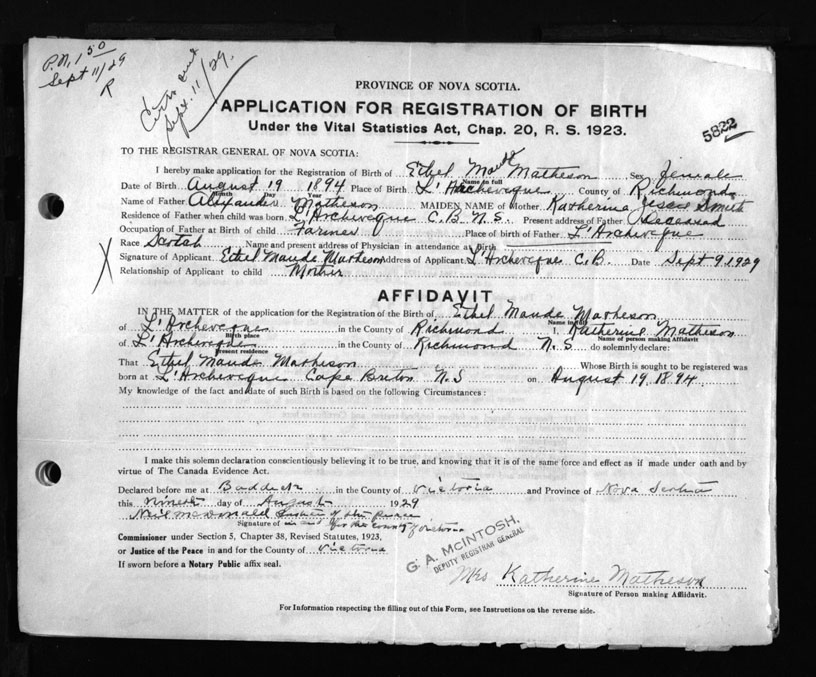 P.N. 1 50
Sept 11/29
R
Cert sent
Sept. 11/29.
PROVINCE OF NOVA SCOTIA.
APPLICATION FOR REGISTRATION OF BIRTH
Under the Vital Statistics Act, Chap. 20, R. S. 1923.
5822
TO THE REGISTRAR GENERAL OF NOVA SCOTIA:
I hereby make application for the Registration of Birth of Ethel Maude Matheson Sex Female
Name in full
Date of Birth August 19 1894 Place of Birth L'Archeveque County of Richmond
Month Day Year
Name of Father Alexander Matheson MAIDEN NAME of Mother Katherine Jessie Smith
Residence of Father when child was born L'Archeveque C.B. N.S. Present address of Father Deceased
Occupation of Father at Birth of child Farmer Place of birth of Father L'Archeveque
Race Scotch Name and present address of Physician in attendance at Birth
Signature of Applicant Ethel Maude Matheson Address of Applicant L'Archeveque C.B. Date Sept 9 1929
X Relationship of Applicant to child Mother
AFFIDAVIT
IN THE MATTER of the application for the Registration of the Birth of Ethel Maude Matheson
Name in full
of L'Archeveque in the County of Richmond I, Katherine Matheson
Birth place Name of person making Affidavit
of L'Archeveque in the County of Richmond N.S do solemnly declare:
Present residence
That Ethel Maude Matheson Whose Birth is sought to be registered was
born at L'Archeveque Cape Breton N.S on August 19. 1894.
My knowledge of the fact and date of such Birth is based on the following Circumstances:
I make this solemn declaration conscientiously believing it to be true, and knowing that it is of the same force and effect as if made under oath and by
virtue of The Canada Evidence Act.
Declared before me at Baddeck in the County of Victoria and Province of Nova Scotia
this Nineth day of August 1929
Neil McDonald Justice of the peace
Signature of in and for the county of Victoria
Commissioner under Section 5, Chapter 38, Revised Statutes, 1923,
or Justice of the Peace in and for the County of Victoria
If sworn before a Notary Public affix seal.
G. A. McINTOSH,
DEPUTY REGISTRAR GENERAL
Mrs Katherine Matheson
Signature of Person making Affidavit.
For Information respecting the filling out of this Form, see Instructions on the reverse side.